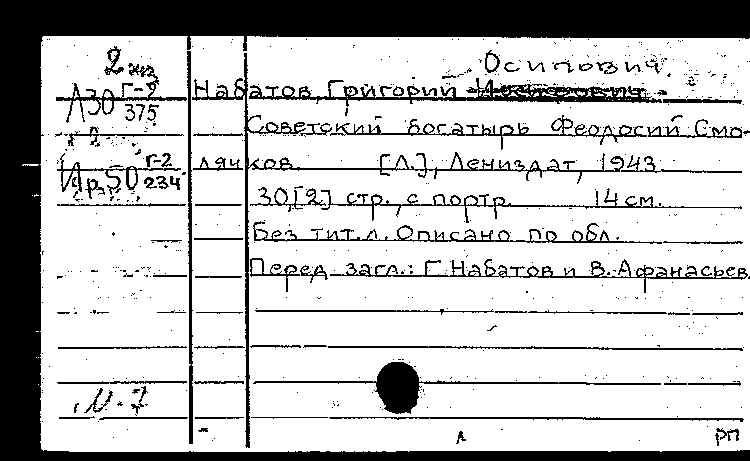 2 экз
Осипович
Л30 Г-2/375 Набатов, Григорий
Советский богатырь Феодосий Смо-
Ир50 Г-2/234 лячков. [Л.], Лениздат, 1943.
30,[2] стр., с портр. 14 см.
Без тит.л. Описано по обл.
Перед загл.: Г. Набатов и В. Афанасьев.
М-7
л РП